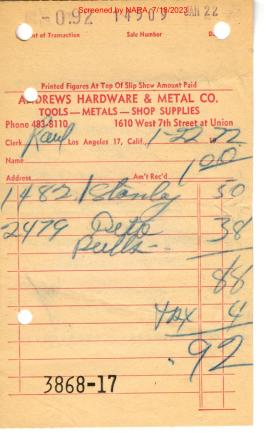 Screened by NARA, 7/18/2023
-0.92 14909 JAN 22
nt of Transaction Sale Number
Printed Figures At Top Of Slip Show Amount Paid
ANDREWS HARDWARE & METAL CO.
TOOLS — METALS — SHOP SUPPLIES
Phone 483-8110 1610 West 7th Street at Union
Clerk Karl Los Angeles 17, Calif. 1-22-72
Name 1.00
Address Am't Rec'd
1482 1 Stanley 50
2479 Deto 38
Pulls
88
TAX 4
.92
3868-17